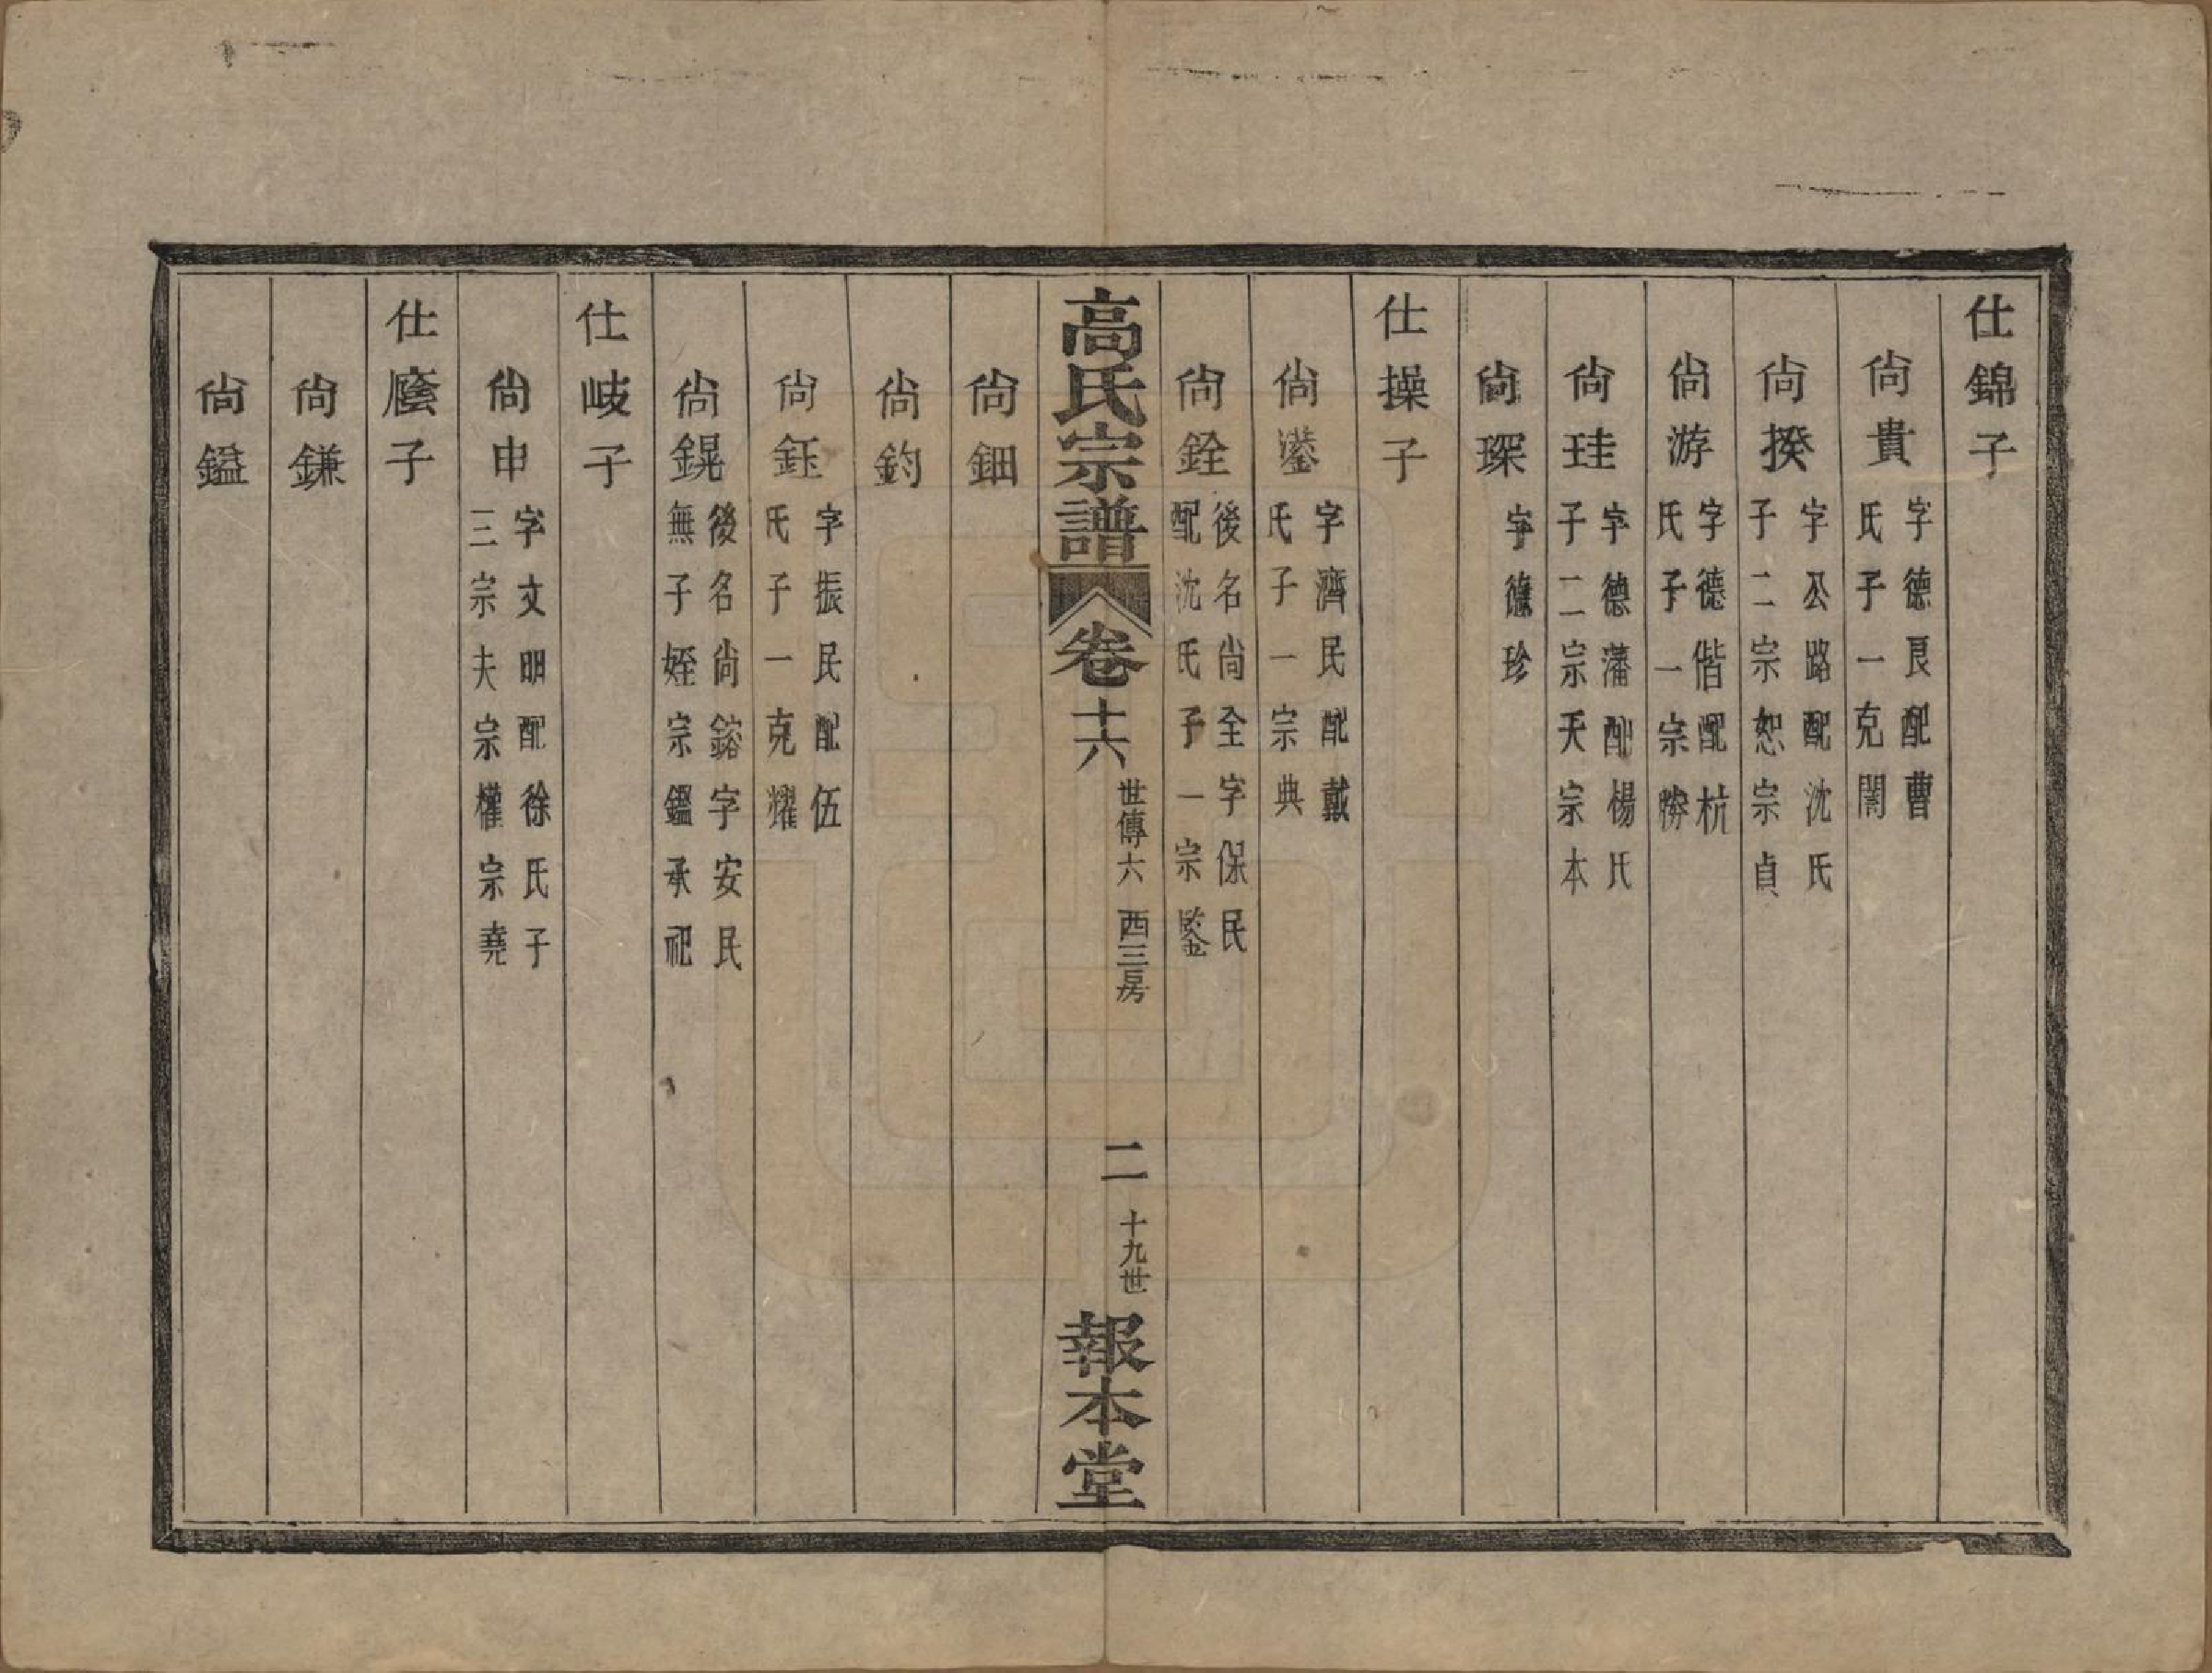 仕錦子
尙貴 字德良配曹
氏子一克誾
尙揆 字公路配沈氏
子二宗恕宗貞
尙游 字德偕配杭
氏子一宗勝
尙珪 字德藩配楊氏
子二宗天宗本
尙琛 字德珍
仕操子
尙鎏 字濟民配戴
氏子一宗典
尙銓 後名尙全字保民
配沈氏子一宗鑒
高氏宗譜 卷十六 世傳六 西三房 二 十九世 報本堂
尙鈿
尙鈞
尙鈺 字振民配伍
氏子一克耀
尙鎤 後名尙鎔字安民
無子姪宗鑑承祀
仕岐子
尙申 字文明配徐氏子
三宗夫宗權宗堯
仕廕子
尙鎌
尙鎰